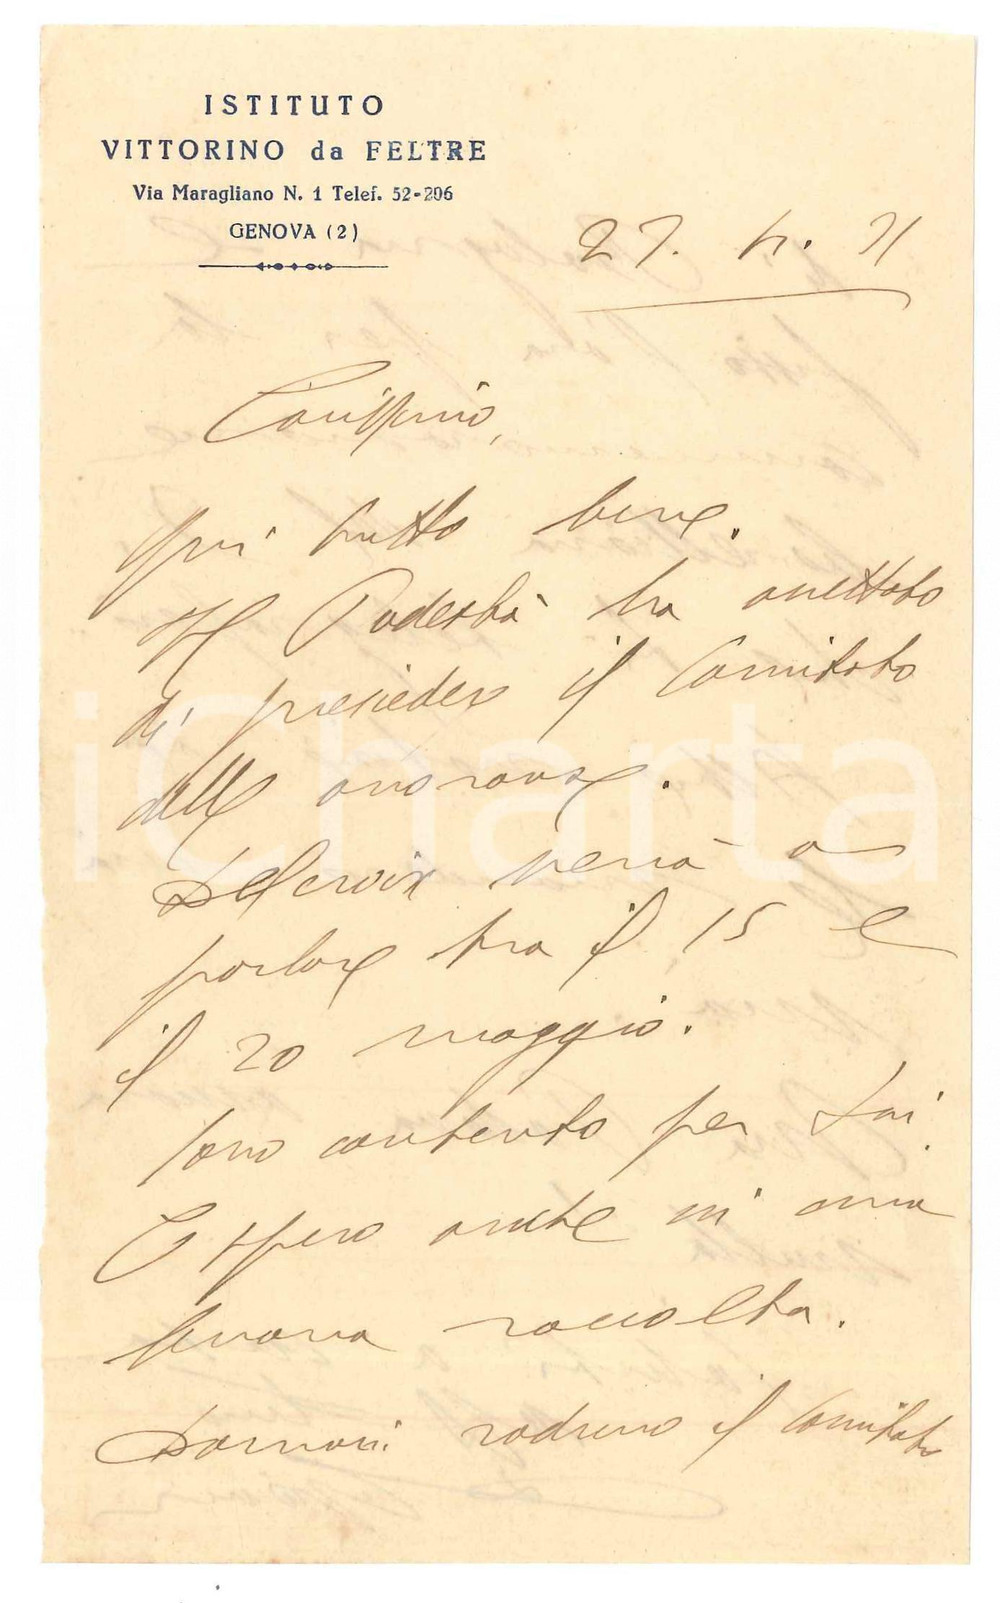 ISTITUTO
VITTORINO da FELTRE
Via Maragliano N. 1 Telef. 52-296
GENOVA (2)
27. 4. 31
Carissimo,
Qui tutto bene.
Il Podestà ha accettato
di presieder il Comitato
delle onoranze.
Delcroix verrà a
parlare tra il 15 e
il 20 maggio.
Sono contento per Lai.
E spero anche in una
buona raccolta.
Domani raduno il Comitato
iCharta